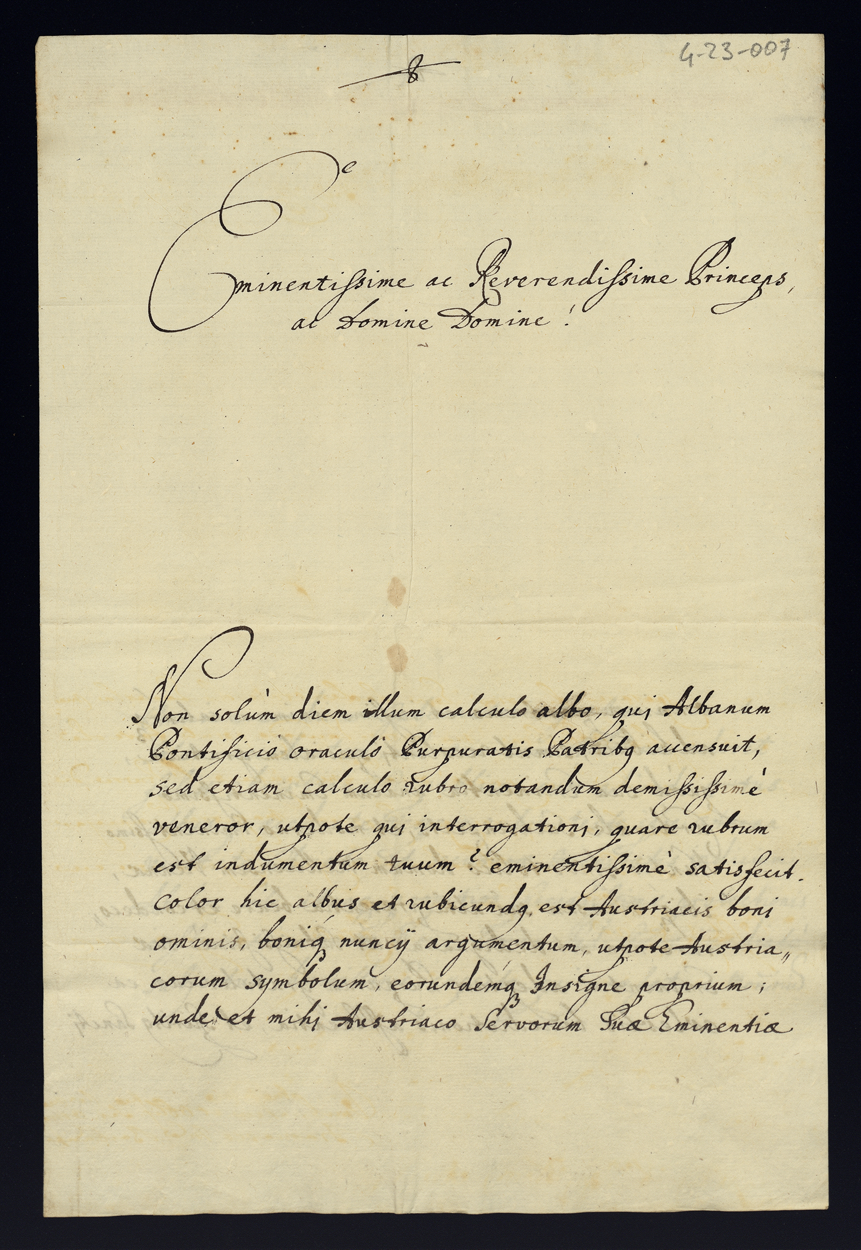 4-23-007
Eminentissime ac Reverendissime Princeps,
ac Domine Domine!
Non solùm diem illum calculo albo, qui Albanum
Pontificio oraculô Purpuratis Patribq accensuit,
sed etiam calculo rubro notandum demississimè
veneror, utpote qui interrogationi, quare rubrum
est indumentum tuum? eminentissimè satisfecit.
Color hic albus et rubicundq est Austriacis boni
ominis, boniq nuncÿ argumentum, utpote Austria„
corum symbolum, eorundemq Insigne proprium;
unde et mihi Austriaco Servorum Suæ Eminentiæ